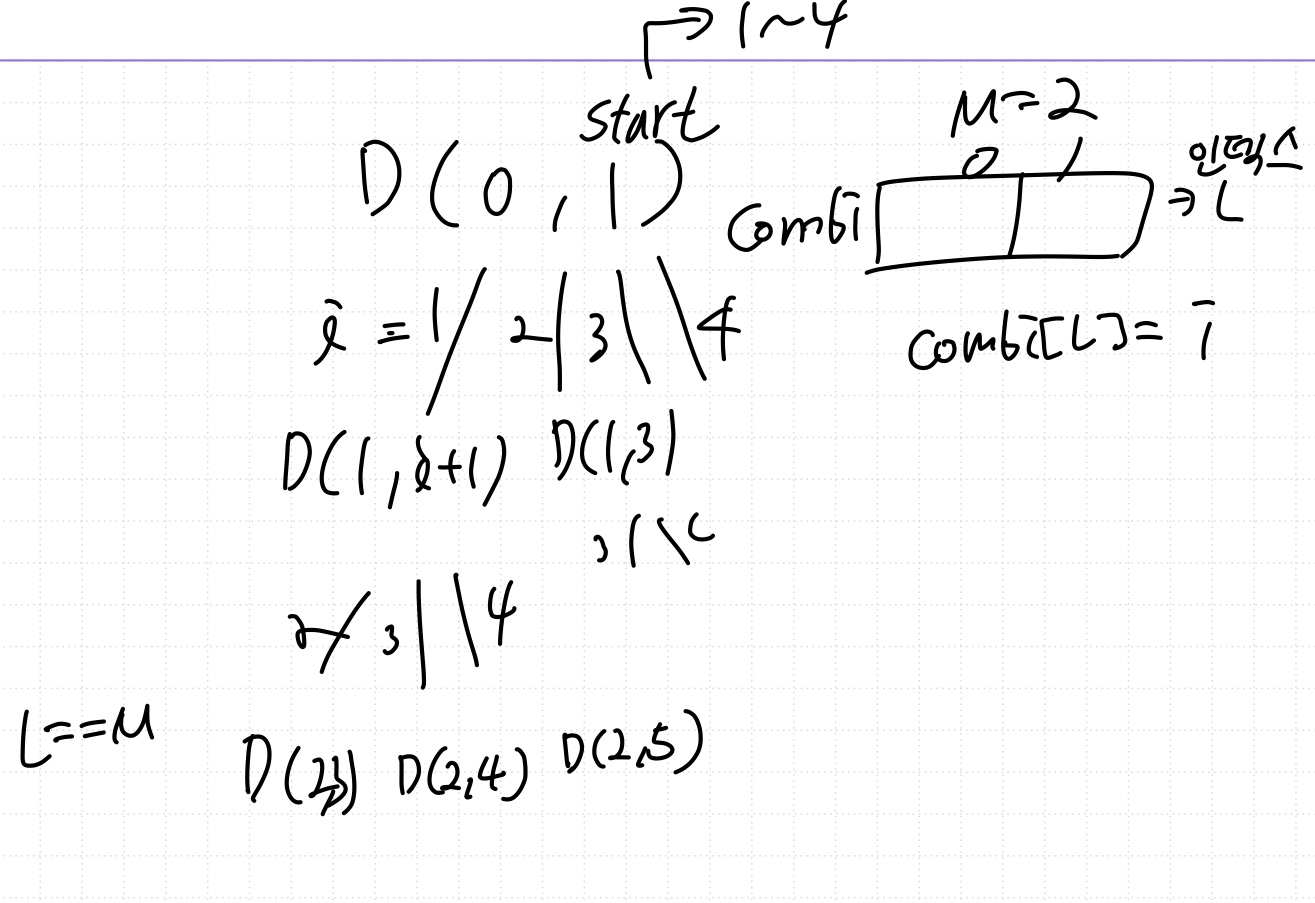 → 1~4
start
M=2
D(0, 1)
0 1
인덱스
combi → L
i = 1 2 3 4
combi[L] = i
D(1, i+1) D(1,3)
3
2 3 4
L==M
D(2,3) D(2,4) D(2,5)